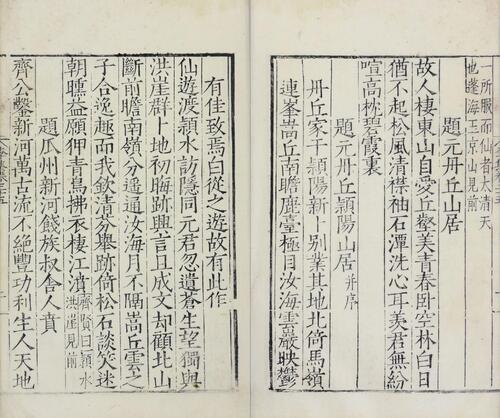 一所服而仙者太清天
也蓬海玉京山見前
題元丹丘山居
故人棲東山自愛丘壑美青春卧空林白日
猶不起松風清襟袖石潭洗心耳羨君無紛
喧高枕碧霞裏
題元丹丘潁陽山居并序
丹丘家于潁陽新卜別業其地北倚馬嶺
連峯嵩丘南瞻鹿臺極目汝海雲巖映鬱
有佳致焉白從之遊故有此作
仙遊渡潁水訪隱同元君忽遺蒼生望獨與
洪崖群卜地初晦跡興言且成文却顧北山
斷前瞻南嶺分遥通汝海月不隔嵩丘雲之
子合逸趣而我欽清芬舉跡倚松石談笑迷
朝曛益願狎青鳥拂衣棲江濆齊賢曰潁水洪崖見前
題瓜州新河餞族叔舍人賁
齊公鑿新河萬古流不絶豐功利生人天地